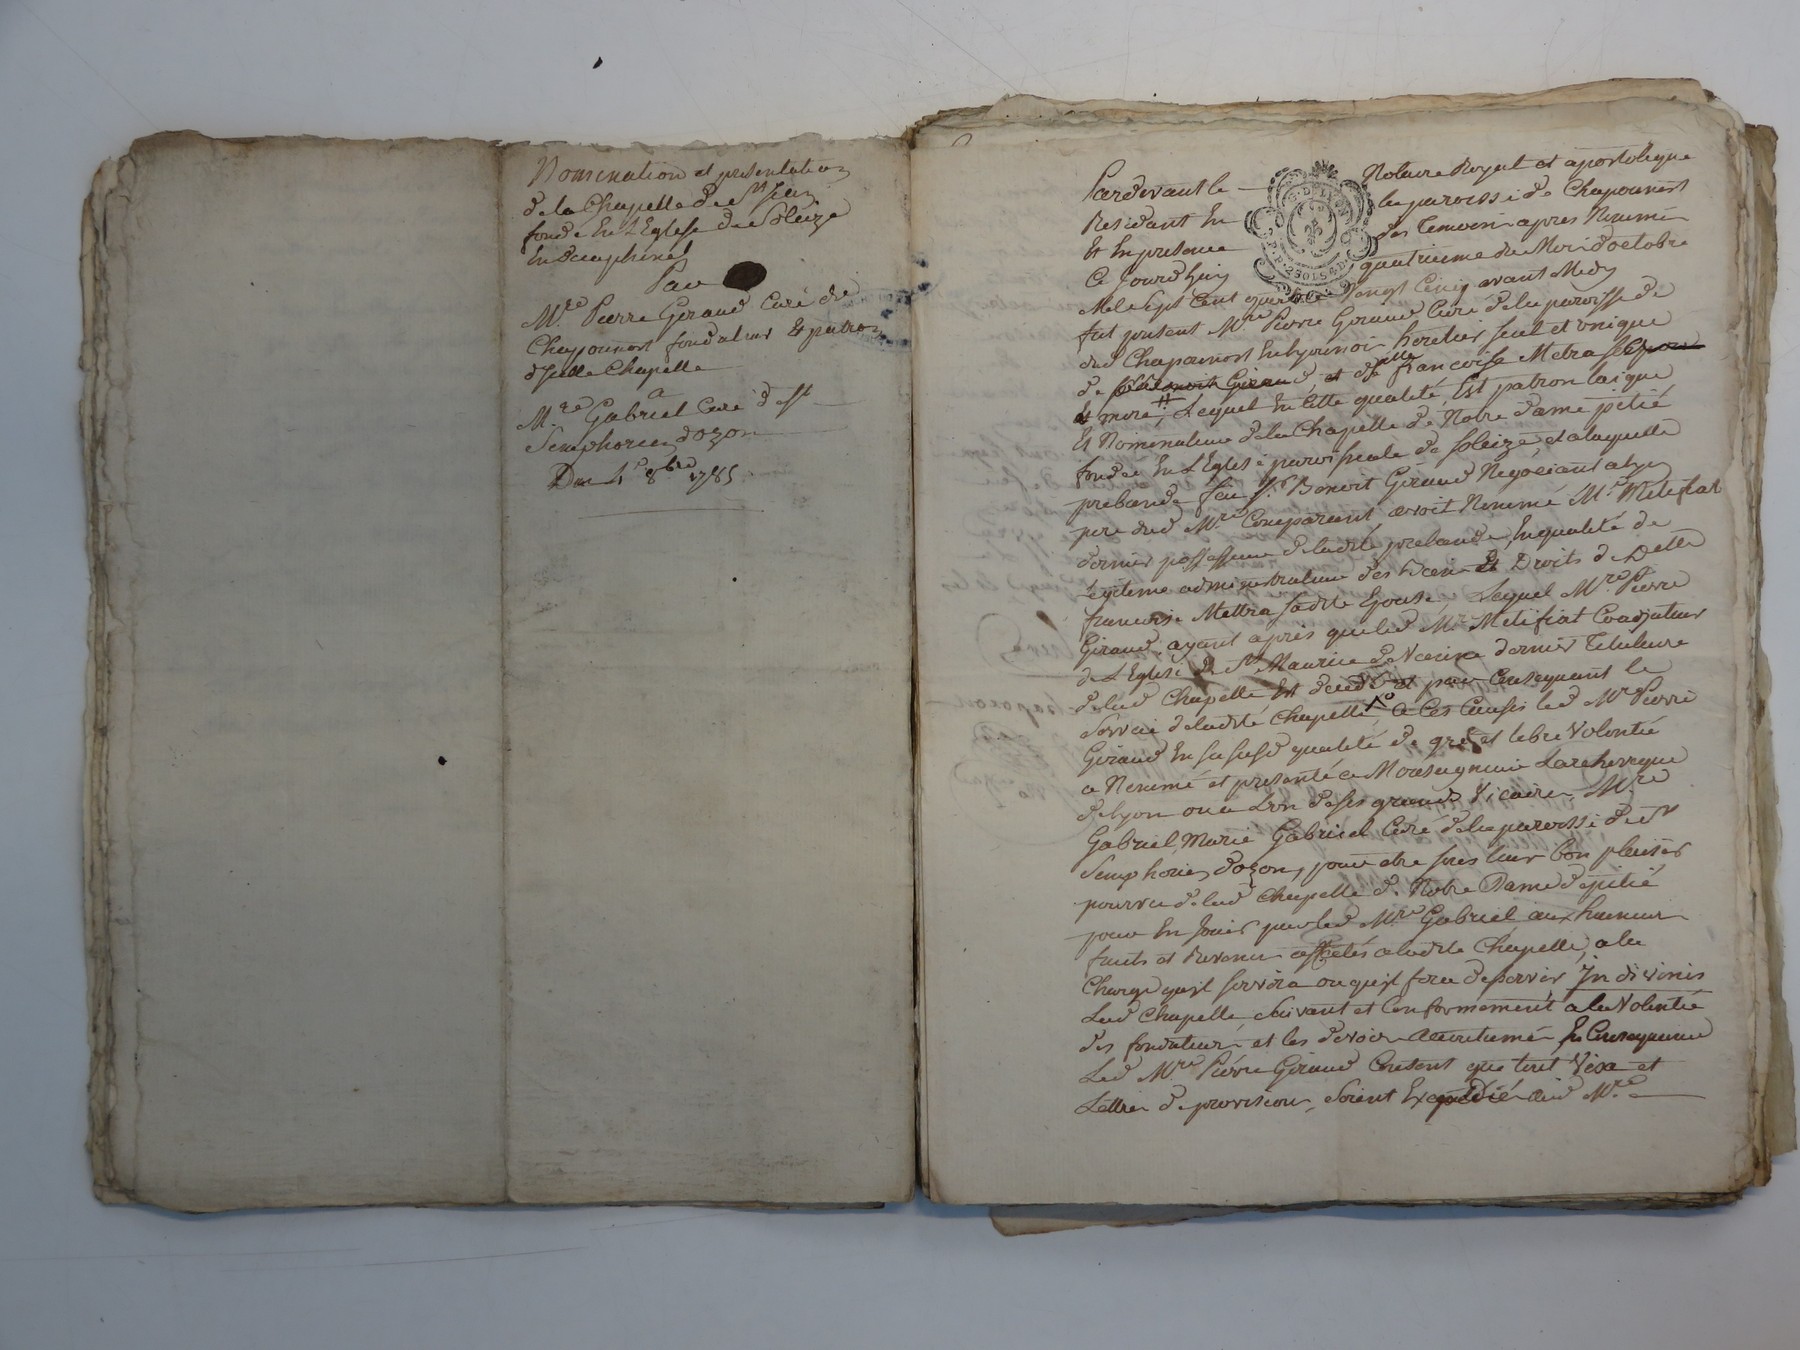 Nomination et presentation
de la Chapelle de St Jean
fondé En L'Eglise de Soleize
En dauphiné
Par
Mre Pierre Giraud Curé de
Chaponnost fondateur Et patron
d'Jcelle Chapelle
a
Mre Gabriel Curé de St
Simphorien d'ozon
Du 4e 8bre 1785
Pardevant le Notaire Royal et apostolique
Residant En la paroisse de Chaponnost
Et En presence des temoins apres Nommés
Ce Jourd'huy quatrieme du Mois d'octobre
Mil Sept Cent quatre Vingt Cinq avant Midy
fut present Mre Pierre Giraud Curé de la paroisse de
dud Chaponnost En Lyonnois heritier seul et Unique
de Giraud, et dlle francoise Metra
mere, Lequel En Cette qualité, Est patron laique
Et Nominateur de la Chapelle de Notre dame pitié
fondée En L'Eglise paroissiale de Soleize, et a laquelle
prebande feu Sr Benoit Giraud Negociant a Lyon
pere dud Mre Comparant avoit Nommé Mre Metifiat
dernier possesseur de ladite prebande, En qualité de
legitime administrateur des Biens et Droits de Delle
francoise Mettra sadite Epouse, Lequel Mre Pierre
Giraud ayant apris que led Mre Metifiat Coadjuteur
de L'Eglise de St Maurice de Vienne dernier Titulaire
de lad Chapelle Est decedé et par Consequent le
Service de ladite Chapelle, A Ces Causes led Mre Pierre
Giraud En sa susd qualité de gré et libre Volonté
a Nommé et presenté a Monseigneur L'archeveque
de Lyon ou a L'un de ses grands Vicaires Mre
Gabriel Marie Gabriel Curé de la paroisse de St
Simphorien d'ozon, pour etre sous leur bon plaisir
pourvu de lad Chapelle de Notre Dame de pitié
pour En Jouir par led Mre Gabriel aux honneurs
fruits et Revenus affectés a ladite Chapelle, a la
Charge qu'il servira ou qu'il fera deservir In divinis
Lad Chapelle Suivant et Conformement a la Volonté
des fondateurs et les devoirs accoutumés En Consequence
Led Mre Pierre Giraud Consent que tout Visa et
Lettres de provision, Soient Expedié aud Mre
G. D. LYON
P.P. 2301S4D.